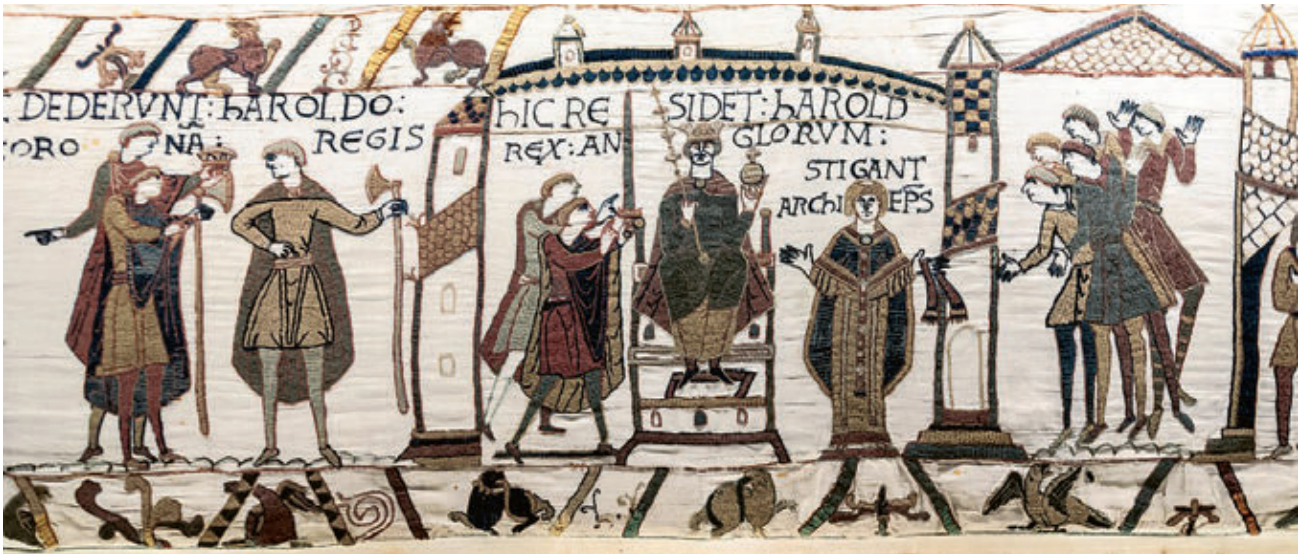 DEDERVNT: hAROLDO:
ORO NÃ: REGIS
hIC RE SIDET: hAROLD
REX: AN GLORVM:
STIGANT
ARChI EP̃S